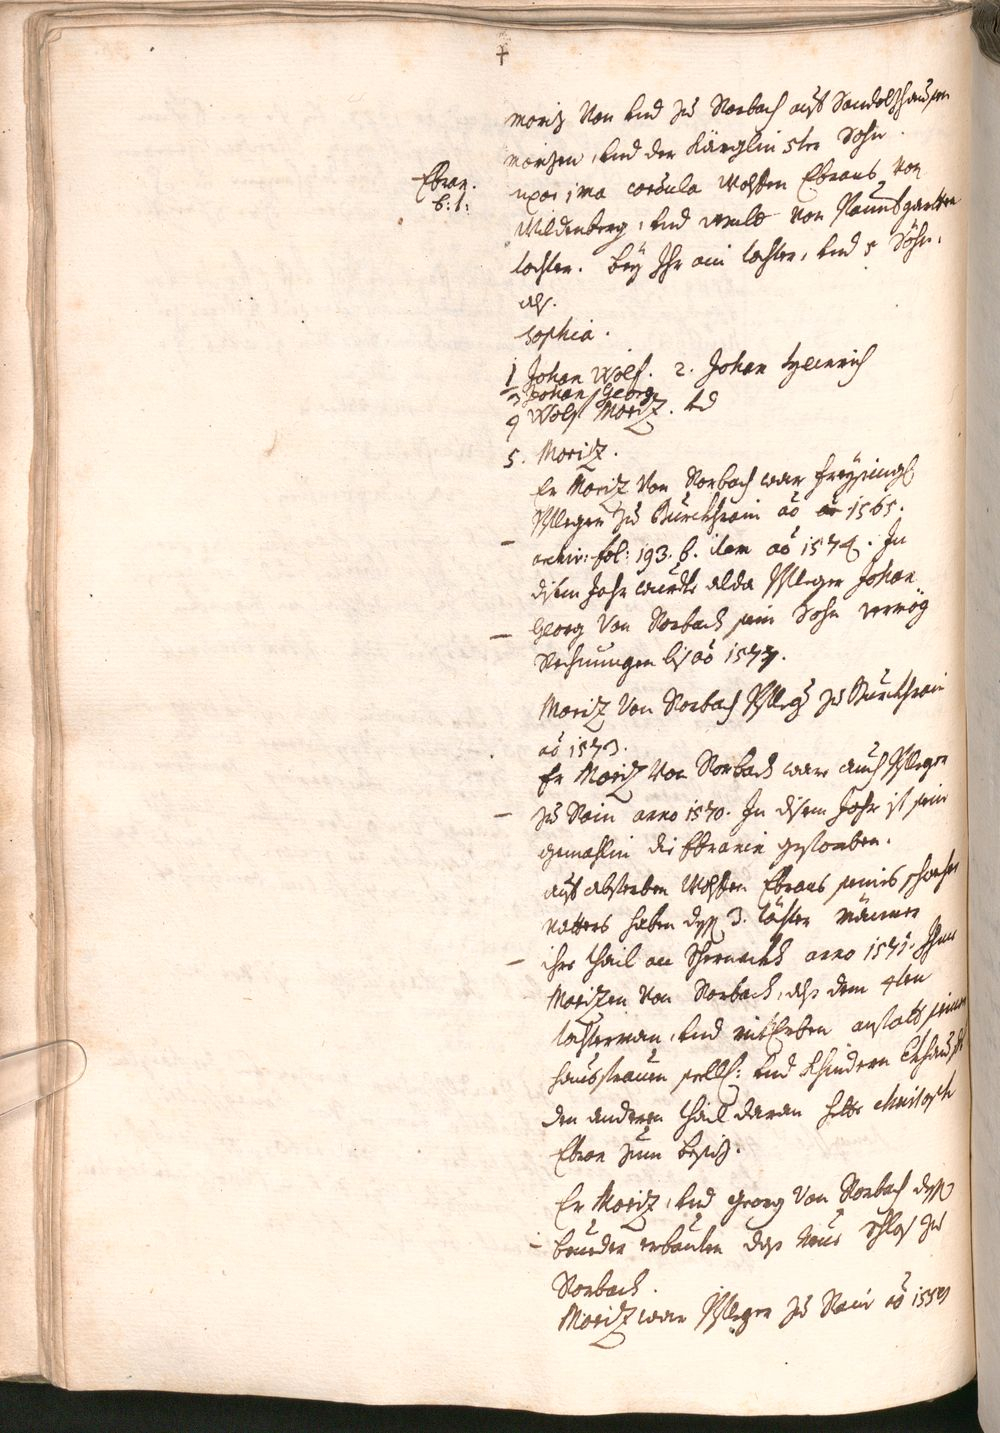 +
Moritz Von und zu Rorbach auf Sandolzhausen
Moritzen, und der Kärglin 5ter Sohn.
Ebran.
b: 1:
uxor 1ma Cordula Wolffen Ebrans von
Wildenberg, und von Paumbgarttn
tochter. bey Ihr ain tochter, und 5 Söhn.
als.
Sophia.
1 Johan Wolf. 2. Johan Heinrich
3 Johan Georg
4 Wolf Moritz. und
5. Moritz.
Er Moritz Von Rorbach war Freysingl
Pfleger zu Burckhrain aõ 1565.
archiv: fol: 193. b. item aõ 1574. In
disem Jahr wurdte alda Pfleger Johan
Georg Von Rorbach sein Sohn vermög
Rechnungen bis aõ 1577.
Moritz Von Rorbach Pfleger zu Burckhrain
aõ 1573.
Er Moritz Von Rorbach ware auch Pfleger
zu Rain anno 1570. In disem Jahr ist sein
gemahlin die Ebranin gestorben.
auf absterben Wolffen Ebrans seines schwehr
vatters haben dess 3. töchter Männer
ihre thail an Scherneckh anno 1571. Ihme
Moritzen Von Rorbach, als dem 4ten
tochterman, und mitErben anstatt seiner
hausfrauen seell: und Khindern
den anderen thail daran hette Christoph
Ebran zum besitz.
Er Moritz, und Georg Von Rorbach dess
brueder erbauten das Neue Schloss zu
Rorbach.
Moritz war Pfleger zu Rain aõ